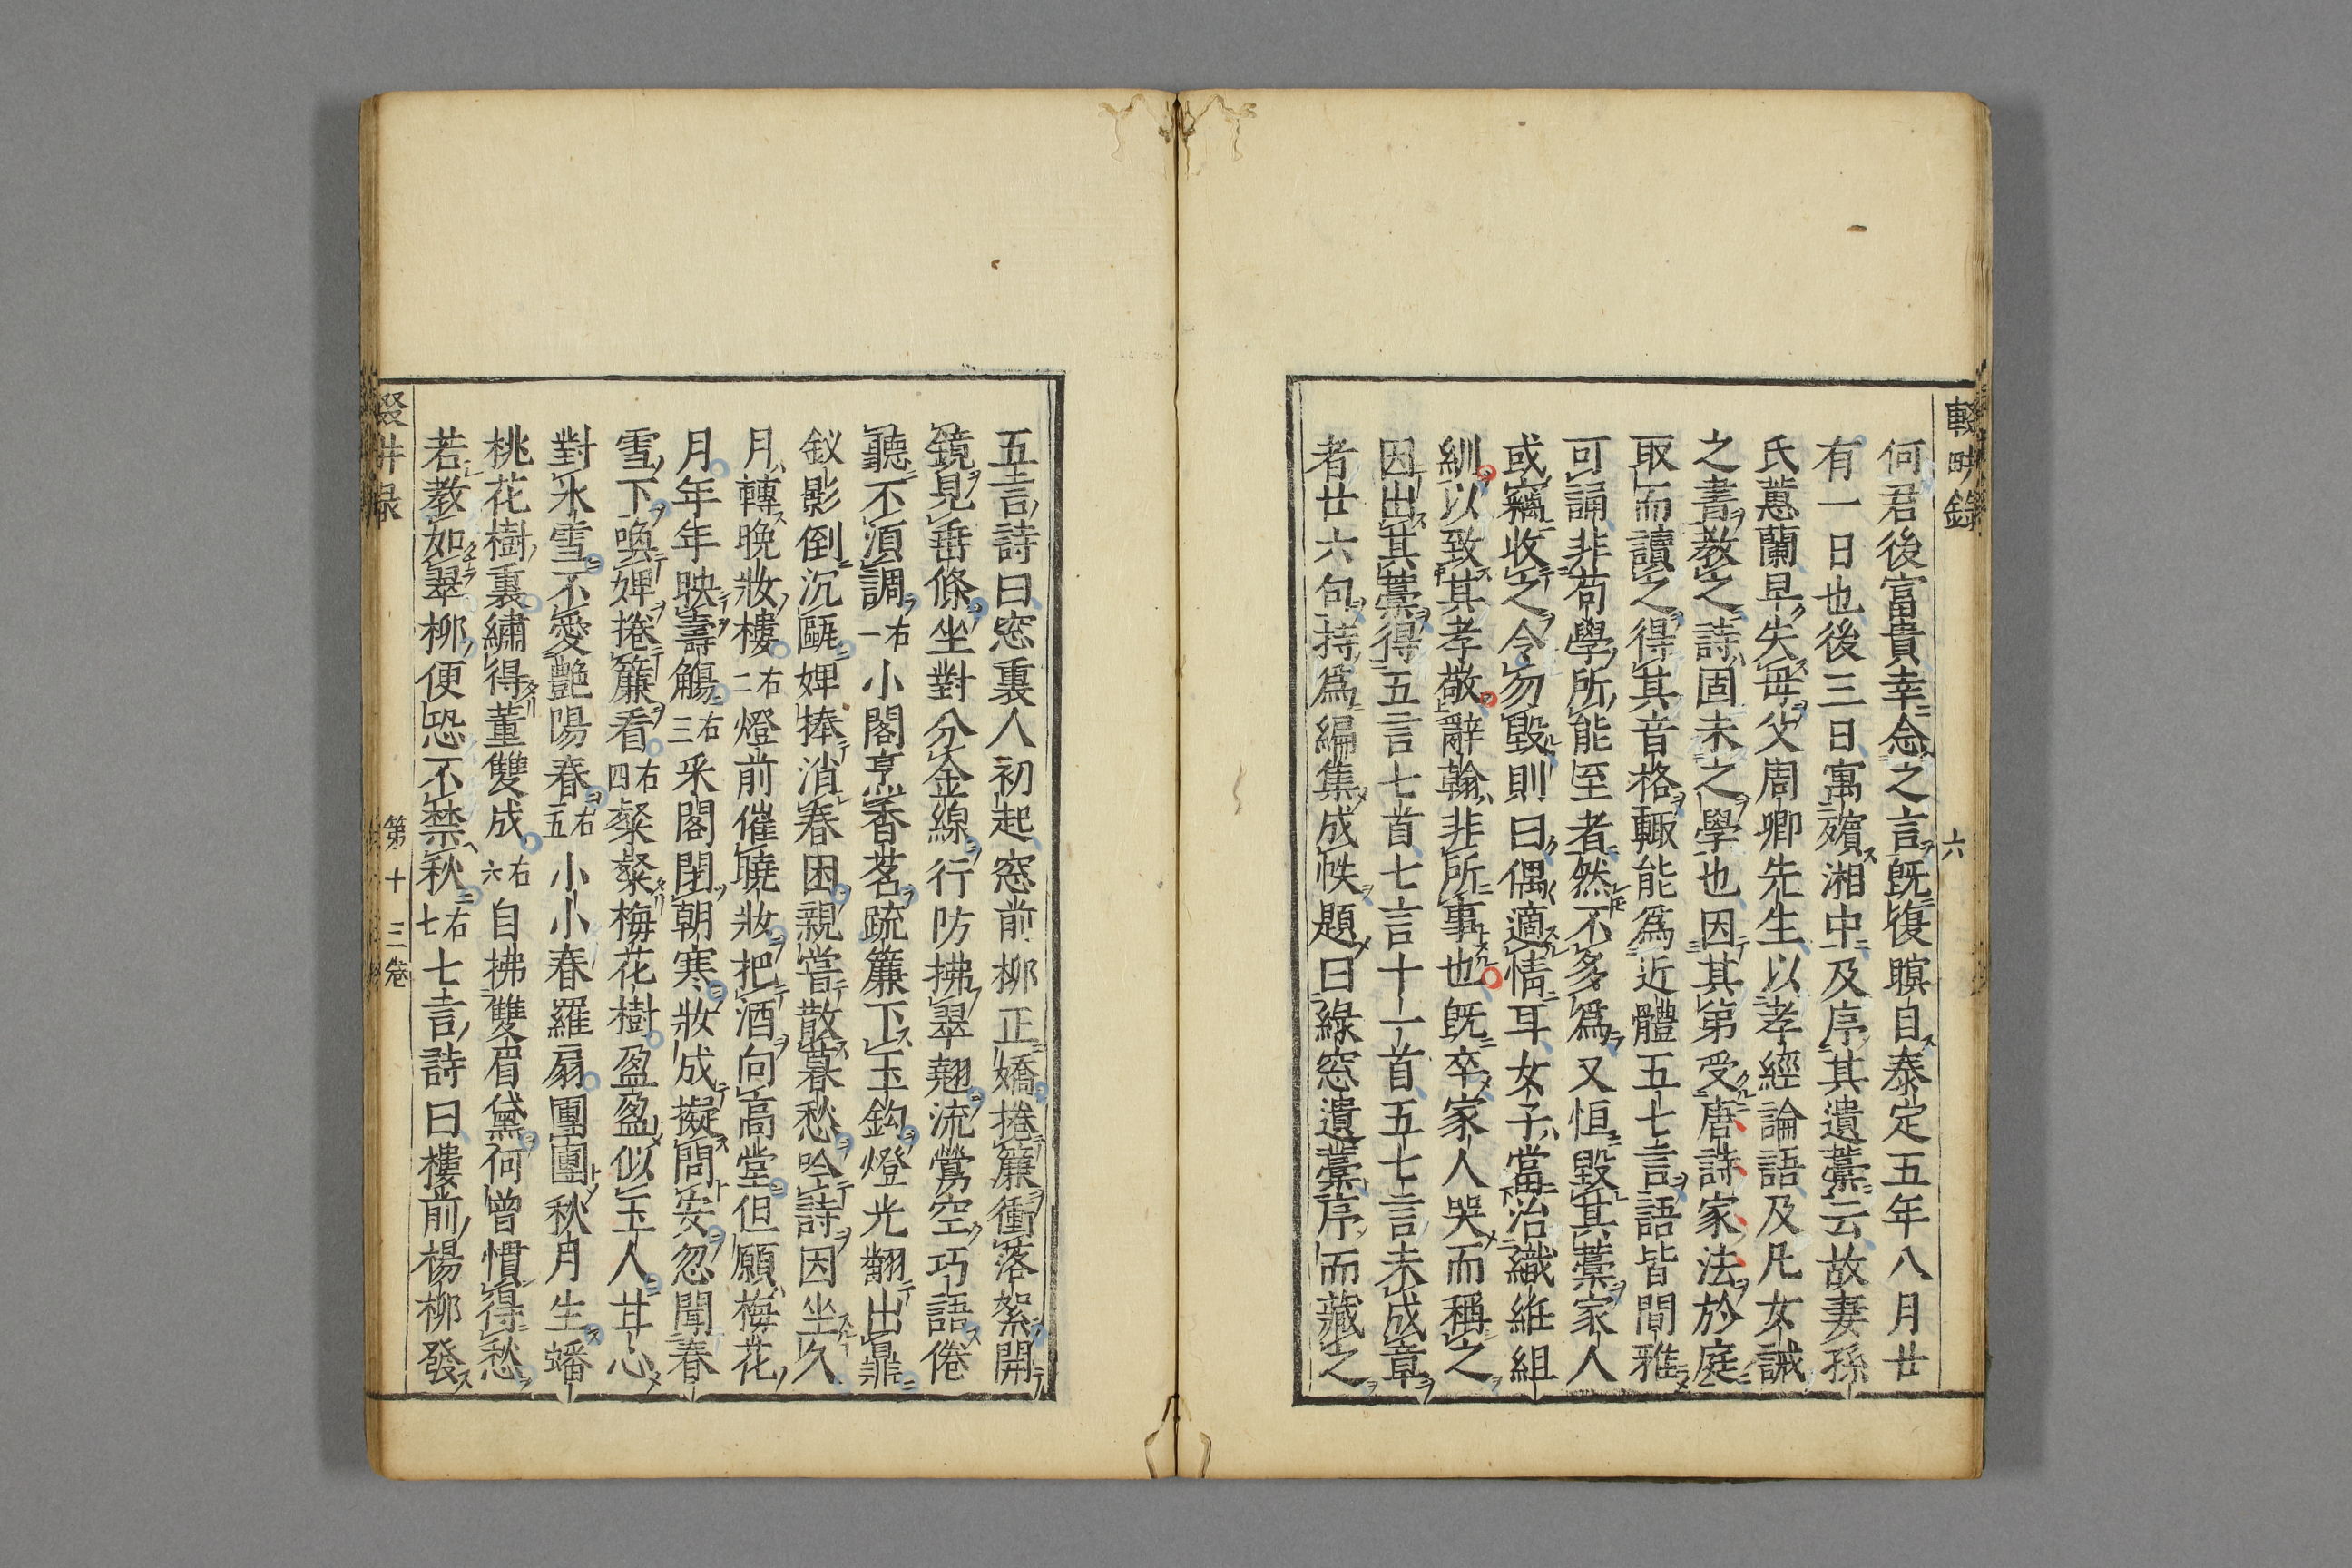 輟畊錄
六
何君後富貴幸念之言既復瞑目泰定五年八月廿
有一日也後三日寓殯湘中及序其遺藁云故妻孫
氏蕙蘭早失母父周卿先生以孝經論語及凡女誡
之書教之詩固未之學也因其弟受唐詩家法於庭
取而讀之得其音格輙能爲近體五七言語皆閒雅
可誦非苟學所能至者然不多爲又恒毀其藁家人
或竊收之令勿毀則曰偶適情耳女子當治織紝組
紃以致其孝敬辭翰非所事也既卒家人哭而稱之
因出其藁得五言七首七言十一首五七言未成章
者廿六句持爲編集成帙題曰綠窓遺藁序而藏之
五言詩曰窓裏人初起窓前柳正嬌捲簾衝落絮開
鏡見垂條坐對分金線行防拂翠翹流鶯空巧語倦
聽不須調右一小閣烹香茗疏簾下玉鉤燈光翻出鼎
釵影倒沉甌婢捧消春困親嘗散暮愁吟詩因坐久
月轉晚妝樓右二燈前催曉妝把酒向高堂但願梅花
月年年映壽觴右三釆閣閉朝寒妝成擬問安忽聞春
雪下喚婢捲簾看右四粲粲梅花樹盈盈似玉人甘心
對氷雪不愛艶陽春右五小小春羅扇團團秋月生蟠
桃花樹裏繡得董雙成右六自拂雙眉黛何曾慣得愁
若教如翠柳便恐不禁秋右七七言詩曰樓前楊柳發
輟畊錄
第十三卷